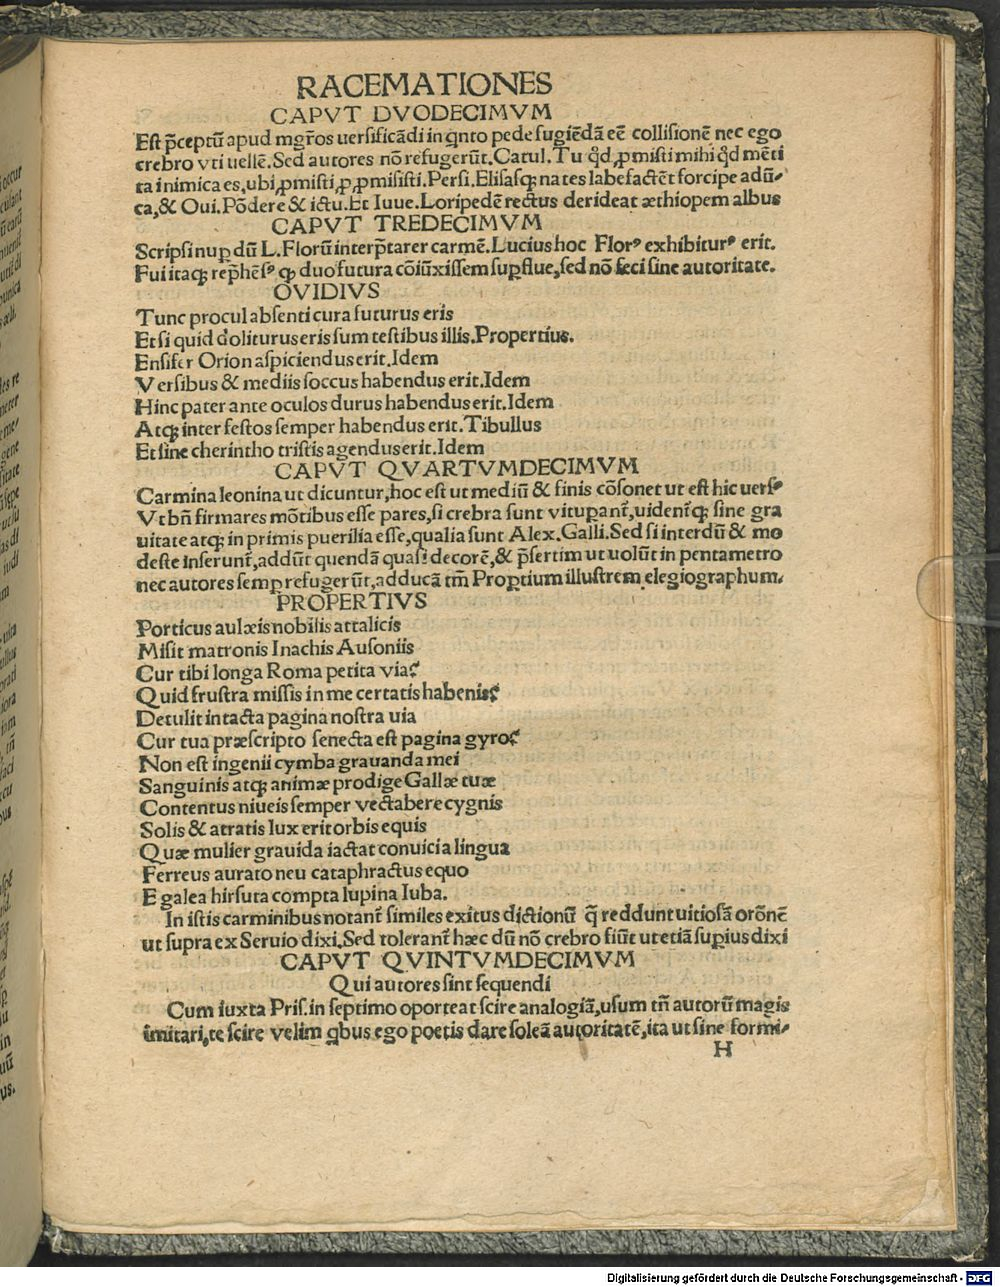 RACEMATIONES
CAPVT DVODECIMVM
Est p̄ceptū apud mgr̄os uersificādi in qnto pede fugiēdā eē collisionē nec ego
crebro vti uellē. Sed autores nō refugerūt. Catul. Tu qd̛ ꝓmisti mihi qd̛ mēti
ta inimica es, ubi ꝓmisti ꝓ ꝓmisisti. Persi. Elisasqꝫ nates labefactēt forcipe adū⸗
ca, & Oui. Pōdere & ictu. Et Iuue. Loripedē rectus derideat æthiopem albus
CAPVT TREDECIMVM
Scripsi nuꝑ dū L. Florū interp̄tarer carmē. Lucius hoc Florꝰ exhibiturꝰ erit.
Fui itaqꝫ rep̄hēsꝰ qꝫ duo futura cōiūxissem suꝑflue, sed nō feci sine autoritate.
OVIDIVS
Tunc procul absenti cura futurus eris
Et si quid doliturus eris sum testibus illis. Propertius.
Ensifer Orion aspiciendus erit. Idem
Versibus & mediis soccus habendus erit. Idem
Hinc pater ante oculos durus habendus erit. Idem
Atqꝫ inter festos semper habendus erit. Tibullus
Et sine cherintho tristis agendus erit. Idem
CAPVT QVARTVMDECIMVM
Carmina leonina ut dicuntur, hoc est ut mediū & finis cōsonet ut est hic uersꝰ
Vt bn̄ firmares mōtibus esse pares, si crebra sunt vituꝑant̄, uident̄qꝫ sine gra
uitate atqꝫ in primis puerilia esse, qualia sunt Alex. Galli. Sed si interdū & mo
deste inserunt̄, addūt quendā quasi decorē, & p̄sertim ut uolūt in pentametro
nec autores semꝑ refugerūt, adducā tm̄ Proꝑtium illustrem elegiographum.
PROPERTIVS
Porticus aulæis nobilis attalicis
Misit matronis Inachis Ausoniis
Cur tibi longa Roma petita via?
Quid frustra missis in me certatis habenis?
Detulit intacta pagina nostra uia
Cur tua præscripto senecta est pagina gyro?
Non est ingenii cymba grauanda mei
Sanguinis atqꝫ animæ prodige Gallæ tuæ
Contentus niueis semper vectabere cygnis
Solis & atratis lux erit orbis equis
Quæ mulier grauida iactat conuicia lingua
Ferreus aurato neu cataphractus equo
E galea hirsuta compta lupina Iuba.
In istis carminibus notant̄ similes exitus dictionū q̄ reddunt uitiosā orōnē
ut supra ex Seruio dixi. Sed tolerant̄ hæc dū nō crebro fiūt ut etiā suꝑius dixi
CAPVT QVINTVMDECIMVM
Qui autores sint sequendi
Cum iuxta Pris. in septimo oporteat scire analogiā, usum tn̄ autorū magis
imitari, te scire velim qbus ego poetis dare soleā autoritatē, ita ut sine formi⸗
H
Digitalisierung gefördert durch die Deutsche Forschungsgemeinschaft - DFG